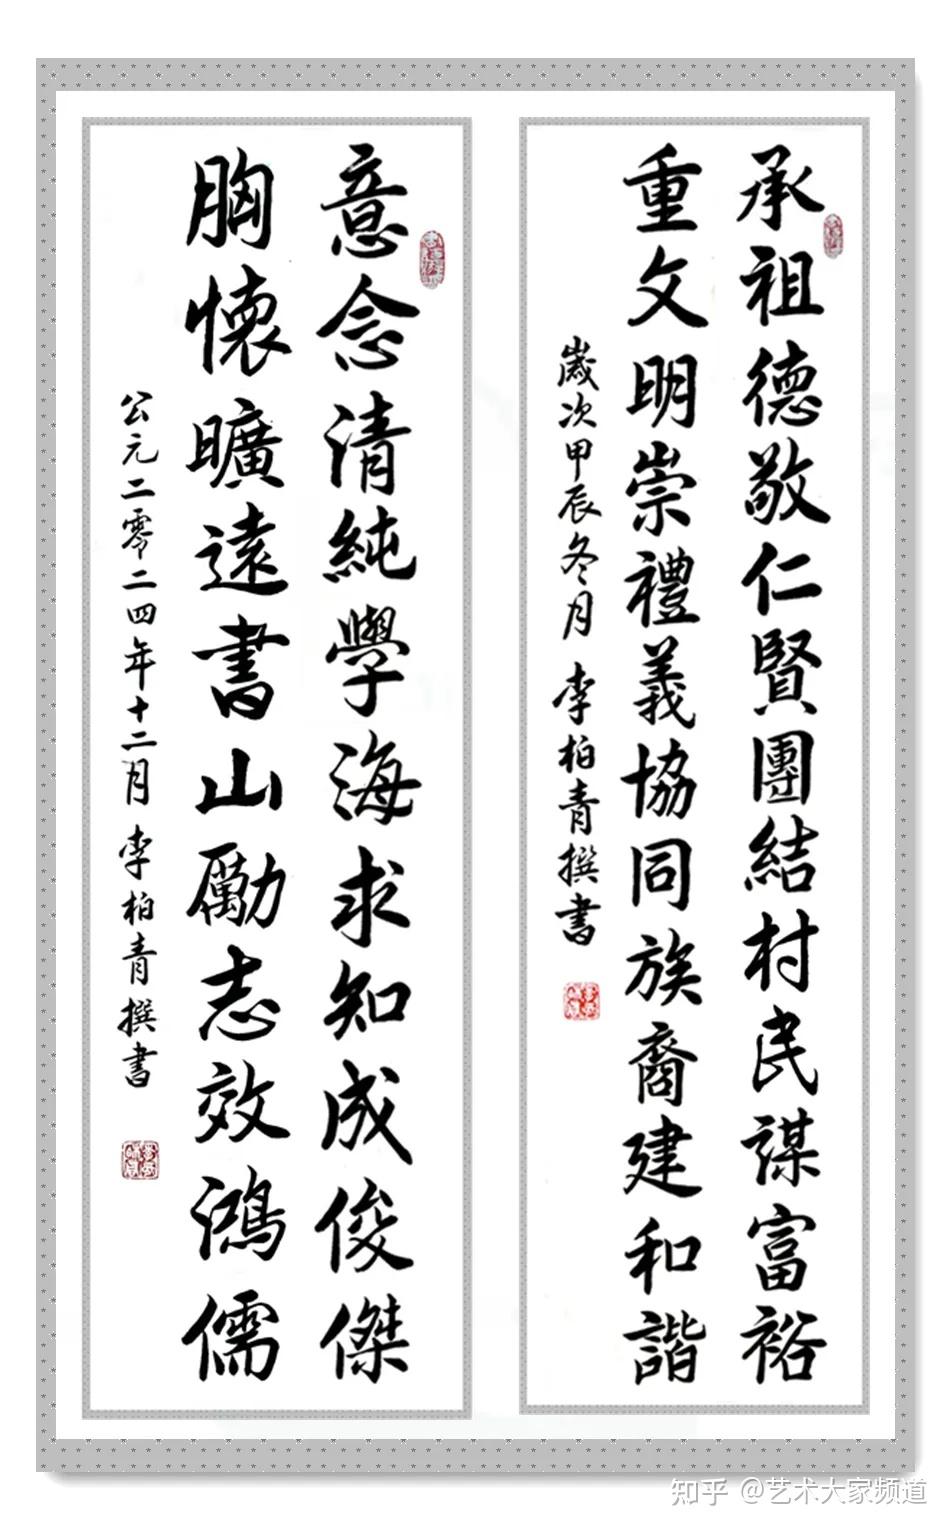 承祖德敬仁賢團結村民謀富裕
重文明崇禮義協同族裔建和諧
歲次甲辰冬月 李柏青撰書
意念清純學海求知成俊傑
胸懷曠遠書山勵志效鴻儒
公元二零二四年十二月 李柏青撰書
知乎 @艺术大家频道